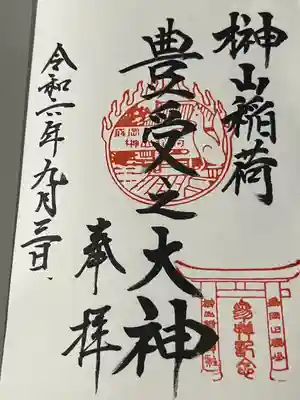 榊山稲荷
豊受之大神
奉拝
令和六年九月三日
参拝記念